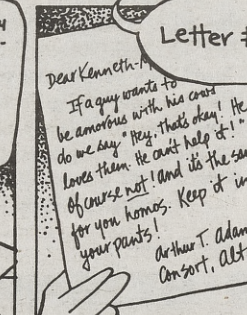 Letter #
Dear Kenneth-M
If a guy wants to
be amorous with his cows
do we say "Hey, that's okay! He
loves them. He can't help it!"
Of course not! and it's the sa
for you homos. Keep it in
your pants!
Arthur T. Adam
Consort, Alt